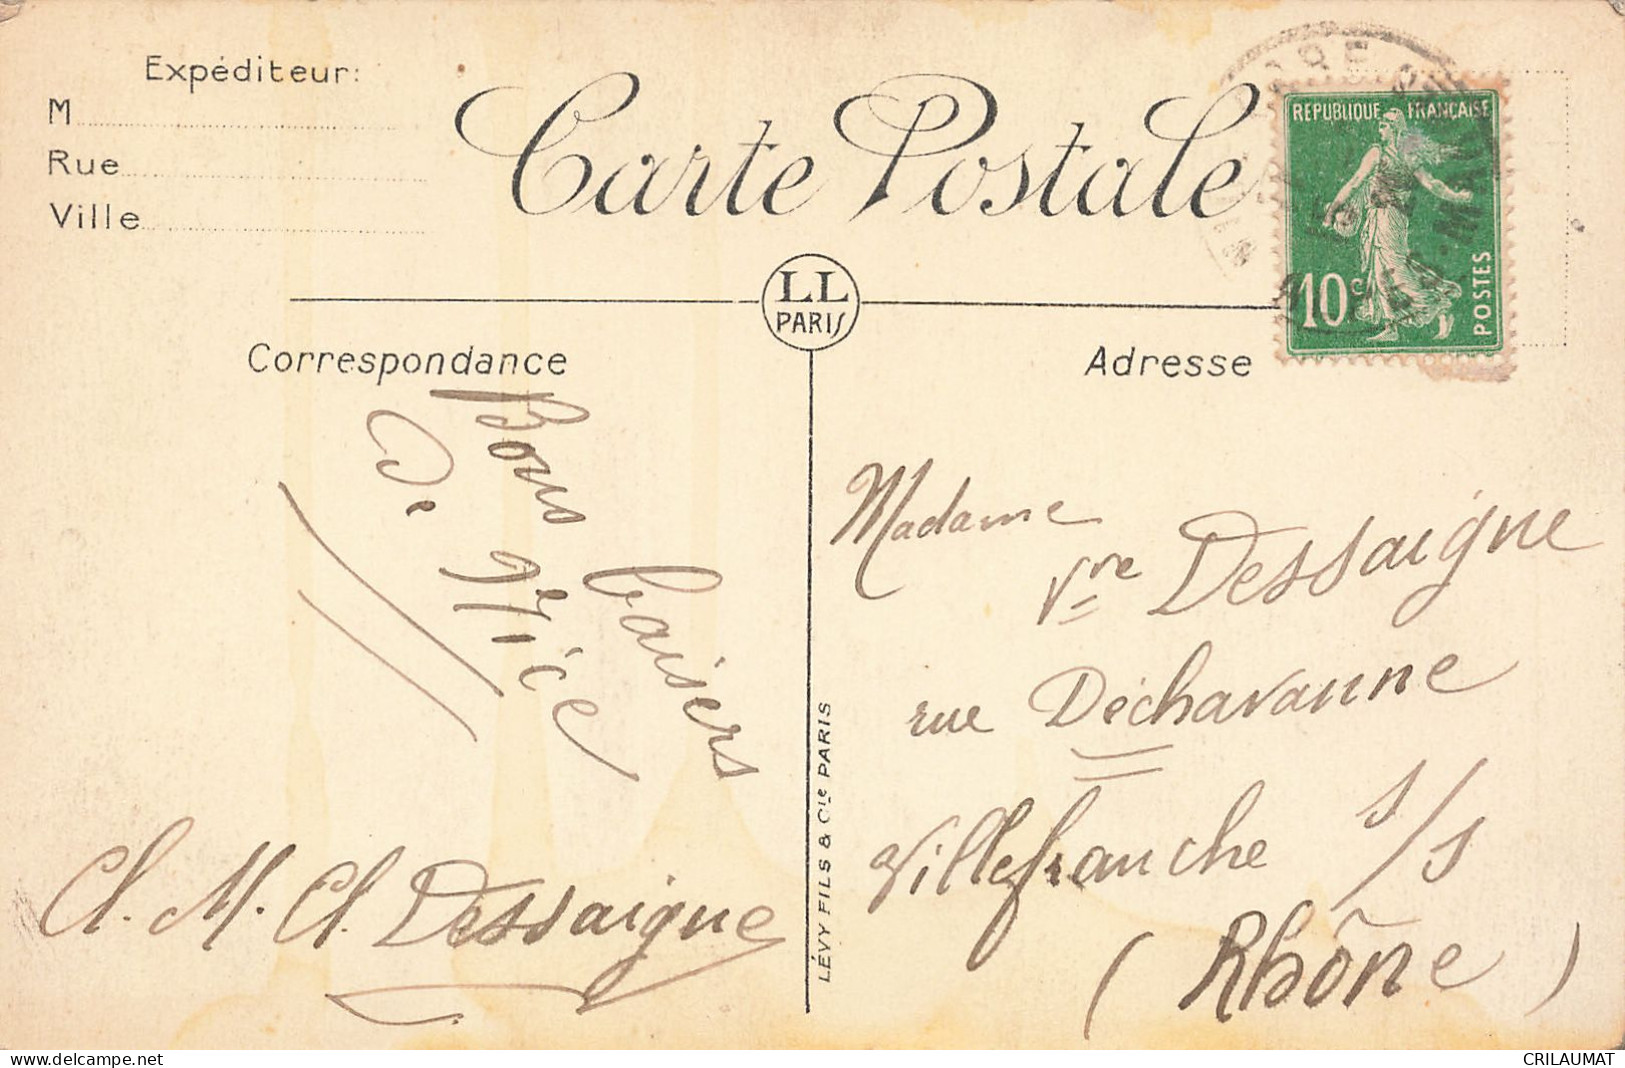 Expéditeur:
M
Rue
Ville
Carte Postale
REPUBLIQUE FRANÇAISE
10c
POSTES
LL
PARIS
Correspondance
Adresse
Bons baisers
De Nice
Cl. M. Cl. Dessaigne
LÉVY FILS & Cie PARIS
Madame
Vve Dessaigne
rue Déchavanne
Villefranche s/s
(Rhône)
delcampe.net
CRILAUMAT